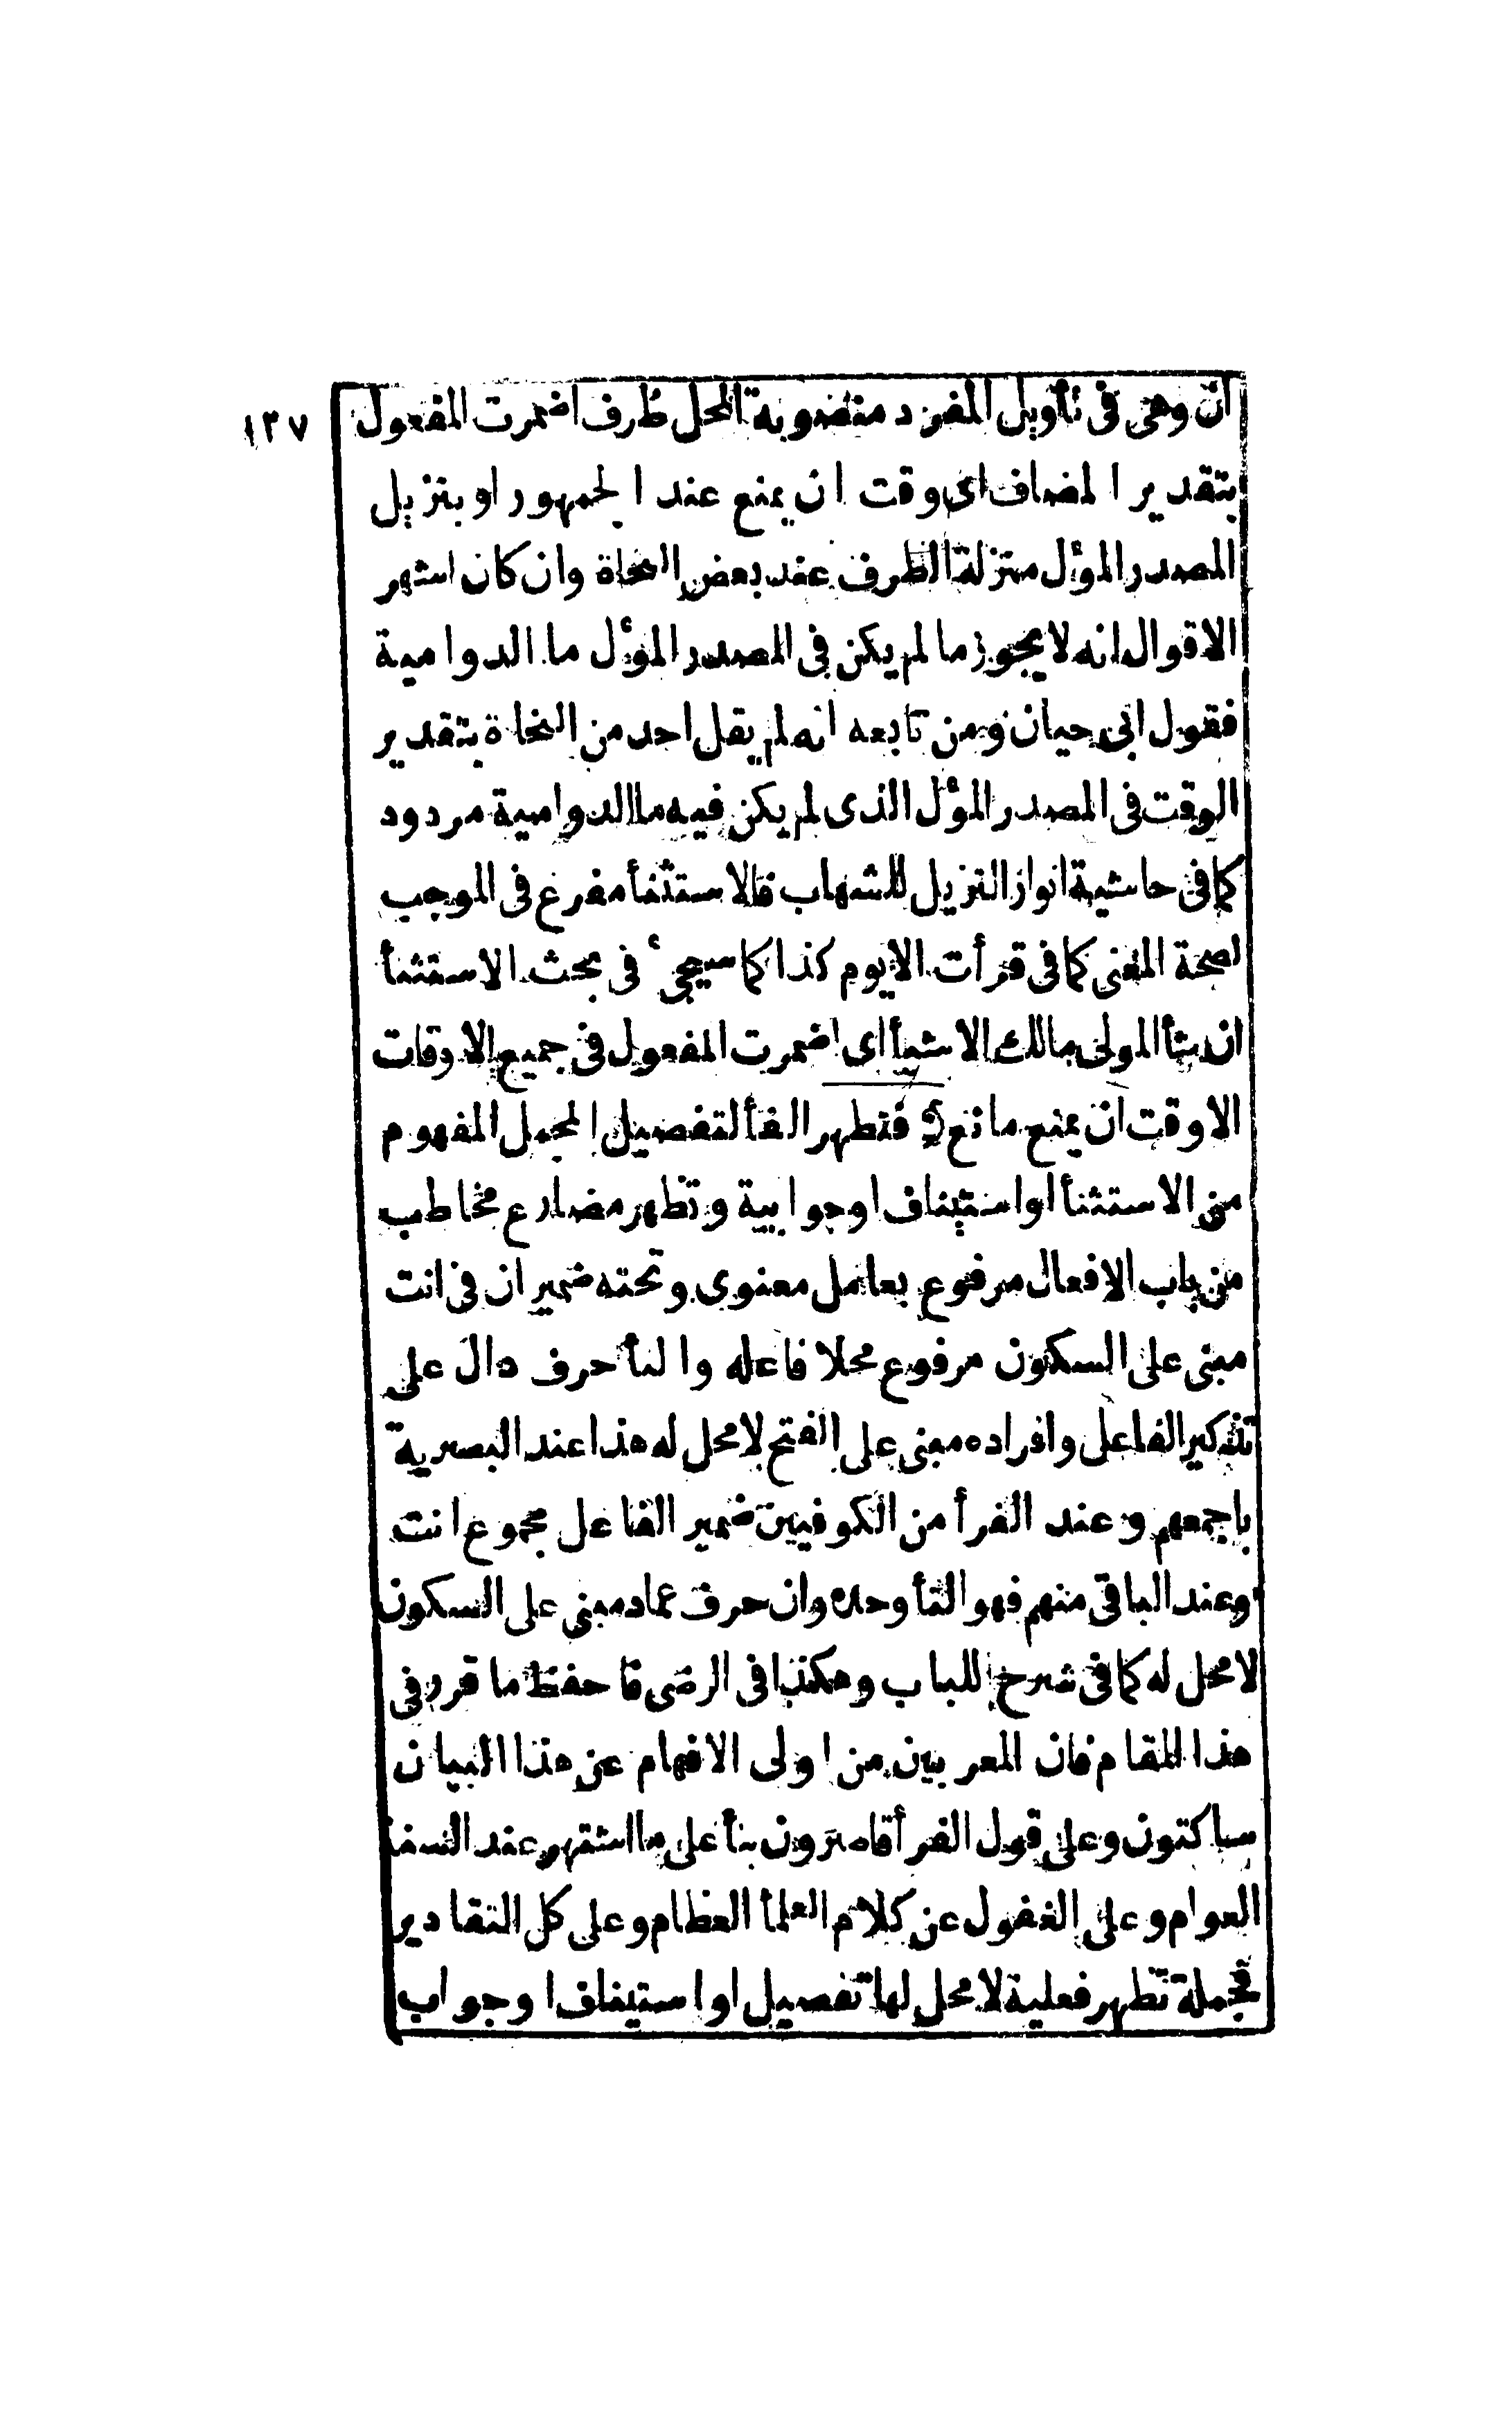 ١٣٧
ان وهى فى تأويل المفرد منصوبة المحل ظرف اضمرت المفعول
بتقدير المضاف اى وقت ان يمنع عند الجمهور او بتنزيل
المصدر المؤل منزلة الظرف عند بعض النحاة وان كان اشهر
الاقوال انه لا يجوز ما لم يكن فى المصدر المؤل ما الدوامية
فقول ابى حيان ومن تابعه انه لم يقل احد من النحاة بتقدير
الوقت فى المصدر المؤل الذى لم يكن فيه ما الدوامية مردود
كما فى حاشية انوار التنزيل للشهاب فالاستثنأ مفرغ فى الموجب
لصحة المعنى كما فى قرأت الا يوم كذا كما سيجىء فى بحث الاستثنأ
ان شأ المولى مالك الاشيأ اى اضمرت المفعول فى جميع الاوقات
الا وقت ان يمنع مانع فتظهر الفأ لتفصيل المجمل المفهوم
من الاستثنأ او استيناف او جوابية وتظهر مضارع مخاطب
من باب الافعال مرفوع بعامل معنوى وتحته ضمير ان فى انت
مبنى على السكون مرفوع محلا فاعله والتأ حرف دال على
تذكير الفاعل وافراده مبنى على الفتح لا محل له هذا عند البصرية
باجمعهم وعند الفرأ من الكوفيين ضمير الفاعل مجموع انت
وعند الباقى منهم فهو التأ وحده وان حرف عماد مبنى على السكون
لا محل له كما فى شرح اللباب وهكذا فى الرضى فاحفظ ما قرر فى
هذا المقام فان المعربين من اولى الافهام عن هذا البيان
ساكتون وعلى قول الفرأ قاصرون بنأ على ما اشتهر عند السفهأ
العوام وعلى الغفول عن كلام العلمأ العظام وعلى كل التقادير
فجملة تظهر فعلية لا محل لها تفصيل او استيناف او جواب